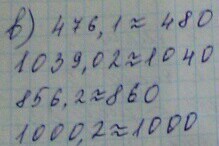 в) 476,1 ≈ 480
1039,02 ≈ 1040
856,2 ≈ 860
1000,2 ≈ 1000